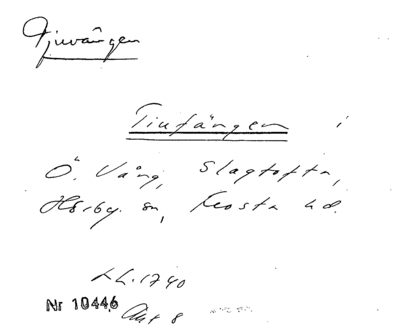 Tjuvängen
Tiufängen i
Ö. Vång, Slagtofta,
Hörby sn, Frosta hd.
LL. 1740
Nr 10446 Akt 8